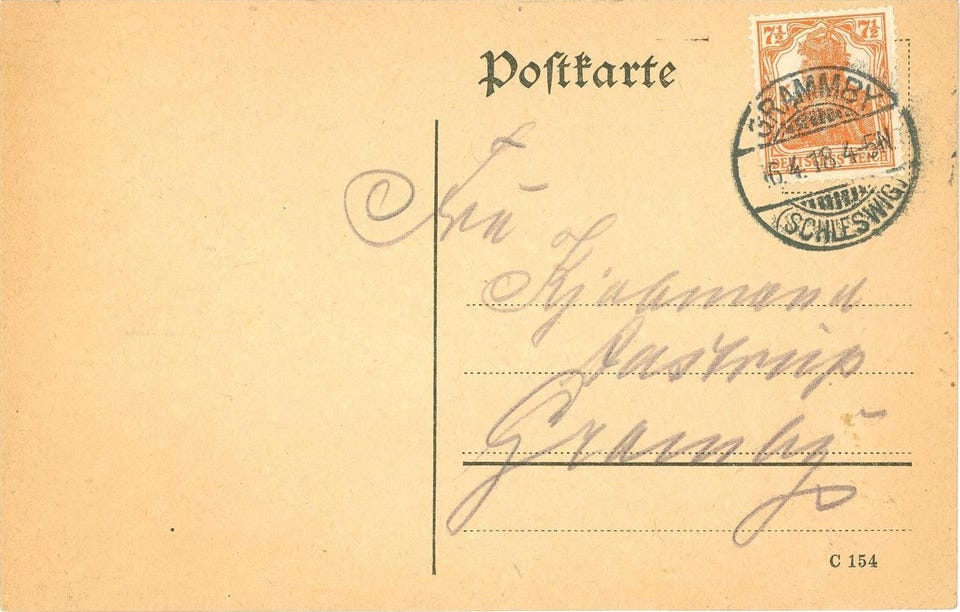 Postkarte
7½ 7½
DEUTSCHES REICH
GRAMMBY
6.4.18.4-5N
(SCHLESWIG)
Fru
Kjøbmand
Gramby
C 154